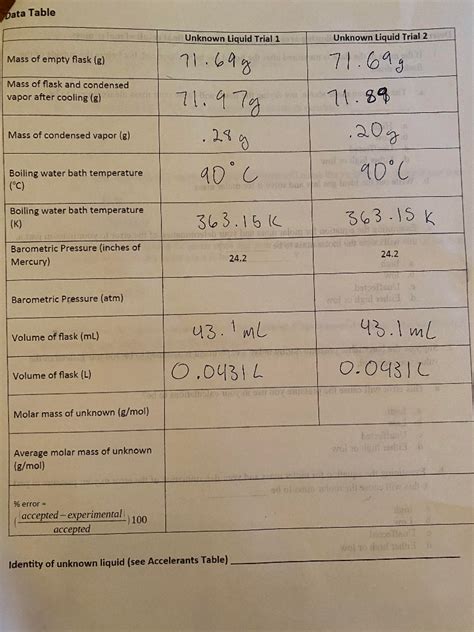 Data Table
Unknown Liquid Trial 1 Unknown Liquid Trial 2
Mass of empty flask (g) 71.69g 71.69g
Mass of flask and condensed
vapor after cooling (g) 71.97g 71.89
Mass of condensed vapor (g) .28g .20g
Boiling water bath temperature
(°C) 90°C 90°C
Boiling water bath temperature
(K) 363.15K 363.15 K
Barometric Pressure (inches of
Mercury) 24.2 24.2
Barometric Pressure (atm)
Volume of flask (mL) 43.1 mL 43.1 mL
Volume of flask (L) 0.0431L 0.0431 L
Molar mass of unknown (g/mol)
Average molar mass of unknown
(g/mol)
% error =
(|accepted – experimental| / accepted)100
Identity of unknown liquid (see Accelerants Table)